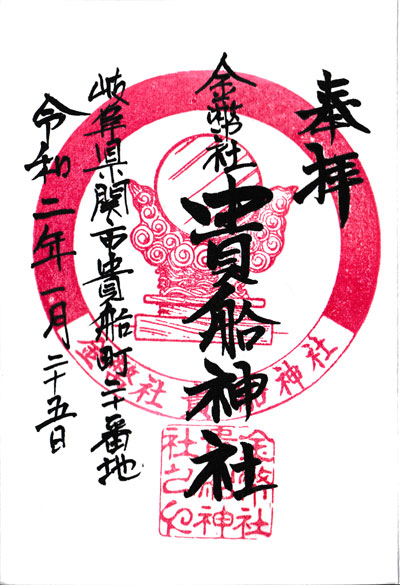 奉拝
金幣社
貴船神社
岐阜県関市貴船町二十番地
令和二年一月二十五日
金幣社 貴船神社
金幣社
貴船神
社之印